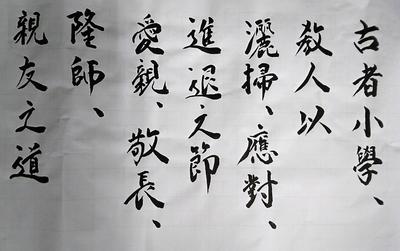 古者小學、
教人以
灑掃、應對、
進退之節
愛親、敬長、
隆師、
親友之道